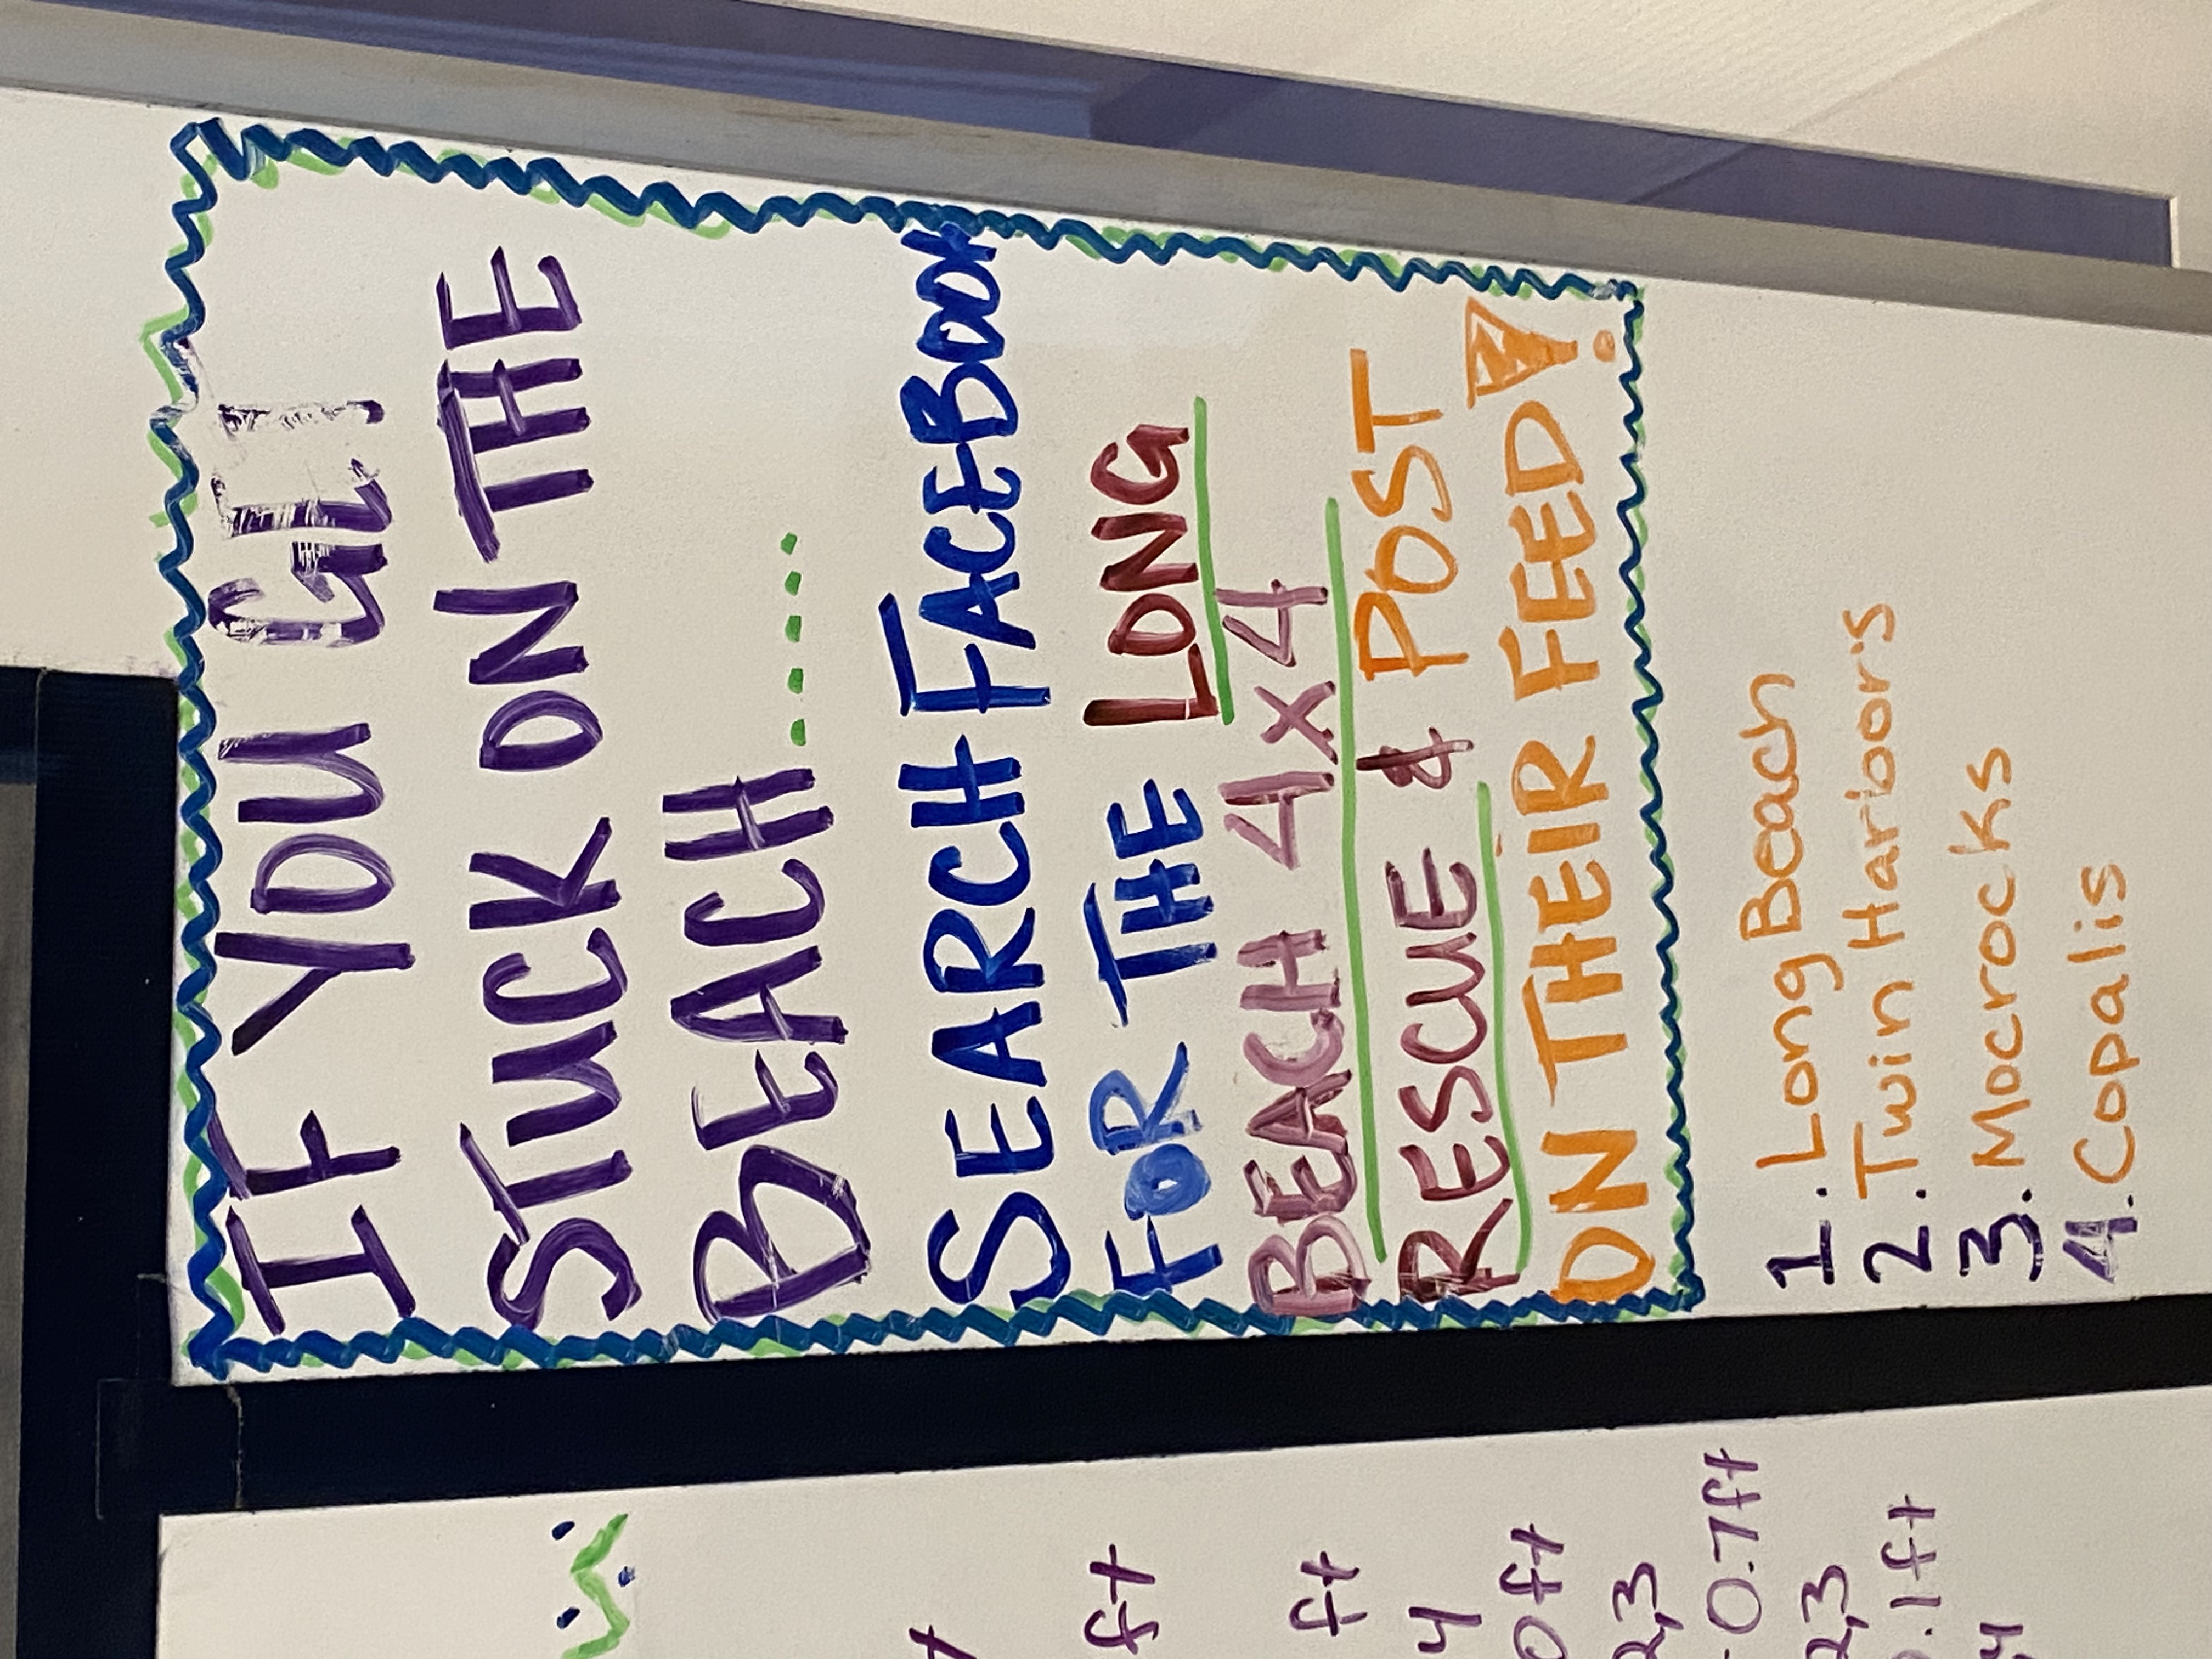 IF YOU GET
STUCK ON THE
BEACH.....
SEARCH FACEBOOK
FOR THE LONG
BEACH 4X4
RESCUE & POST
ON THEIR FEED!
1. Long Beach
2. Twin Harbors
3. Mocrocks
4. Copalis
ft
ft
4
0ft
2,3
-0.7ft
2,3
0.1ft